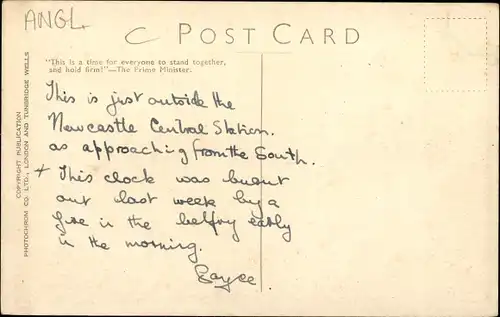 ANGL.
C POST CARD
"This is a time for everyone to stand together,
and hold firm!"—The Prime Minister.
This is just outside the
Newcastle Central Station.
as approaching from the South.
+ This clock was burnt
out last week by a
fire in the belfry early
in the morning.
Bayce
COPYRIGHT PUBLICATION
PHOTOCHROM CO. LTD., LONDON AND TUNBRIDGE WELLS